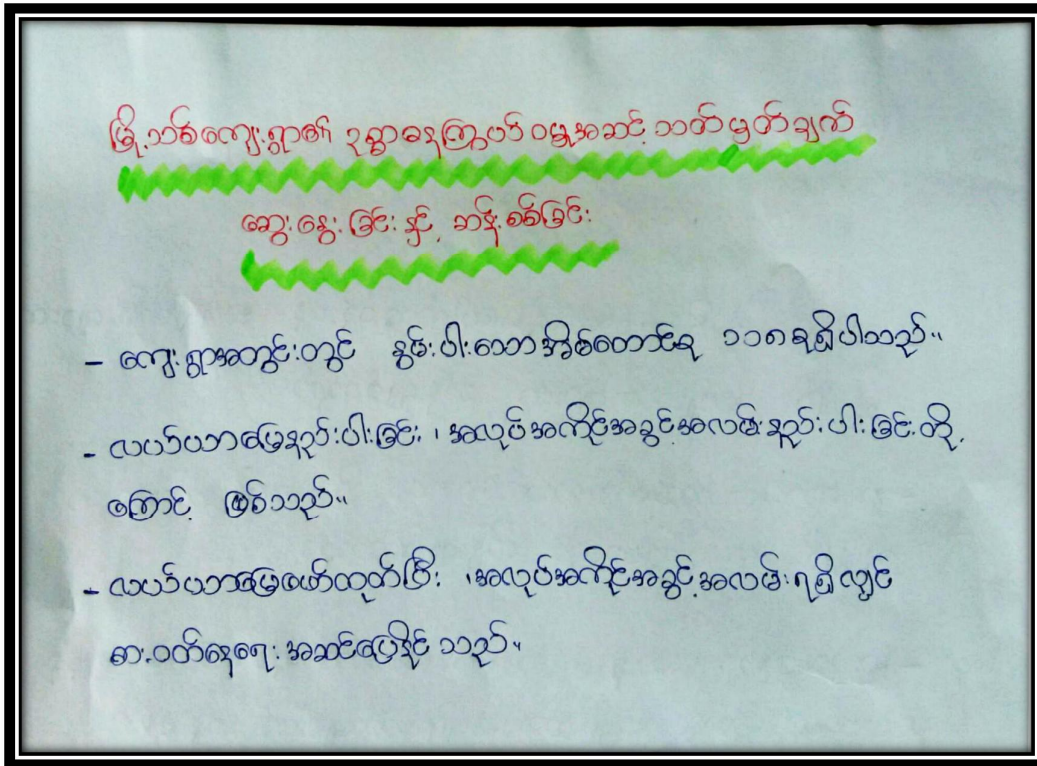 မြို့သစ်ကျေးရွာ၏ ဥစ္စာဓနကြွယ်ဝမှုအဆင့် သတ်မှတ်ချက်
ဆွေးနွေးခြင်းနှင့် ဆန်းစစ်ခြင်း
- ကျေးရွာအတွင်းတွင် နွမ်းပါးသောအိမ်ထောင်စု ၁၁၈ စုရှိပါသည်။
- လယ်ယာမြေနည်းပါးခြင်း ၊ အလုပ်အကိုင်အခွင့်အလမ်းနည်းပါးခြင်းတို့
ကြောင့် ဖြစ်သည်။
- လယ်ယာမြေဖော်ထုတ်ပြီး ၊ အလုပ်အကိုင်အခွင့်အလမ်းရရှိလျှင်
စား၊ဝတ်နေရေး အဆင်ပြေနိုင်သည်။